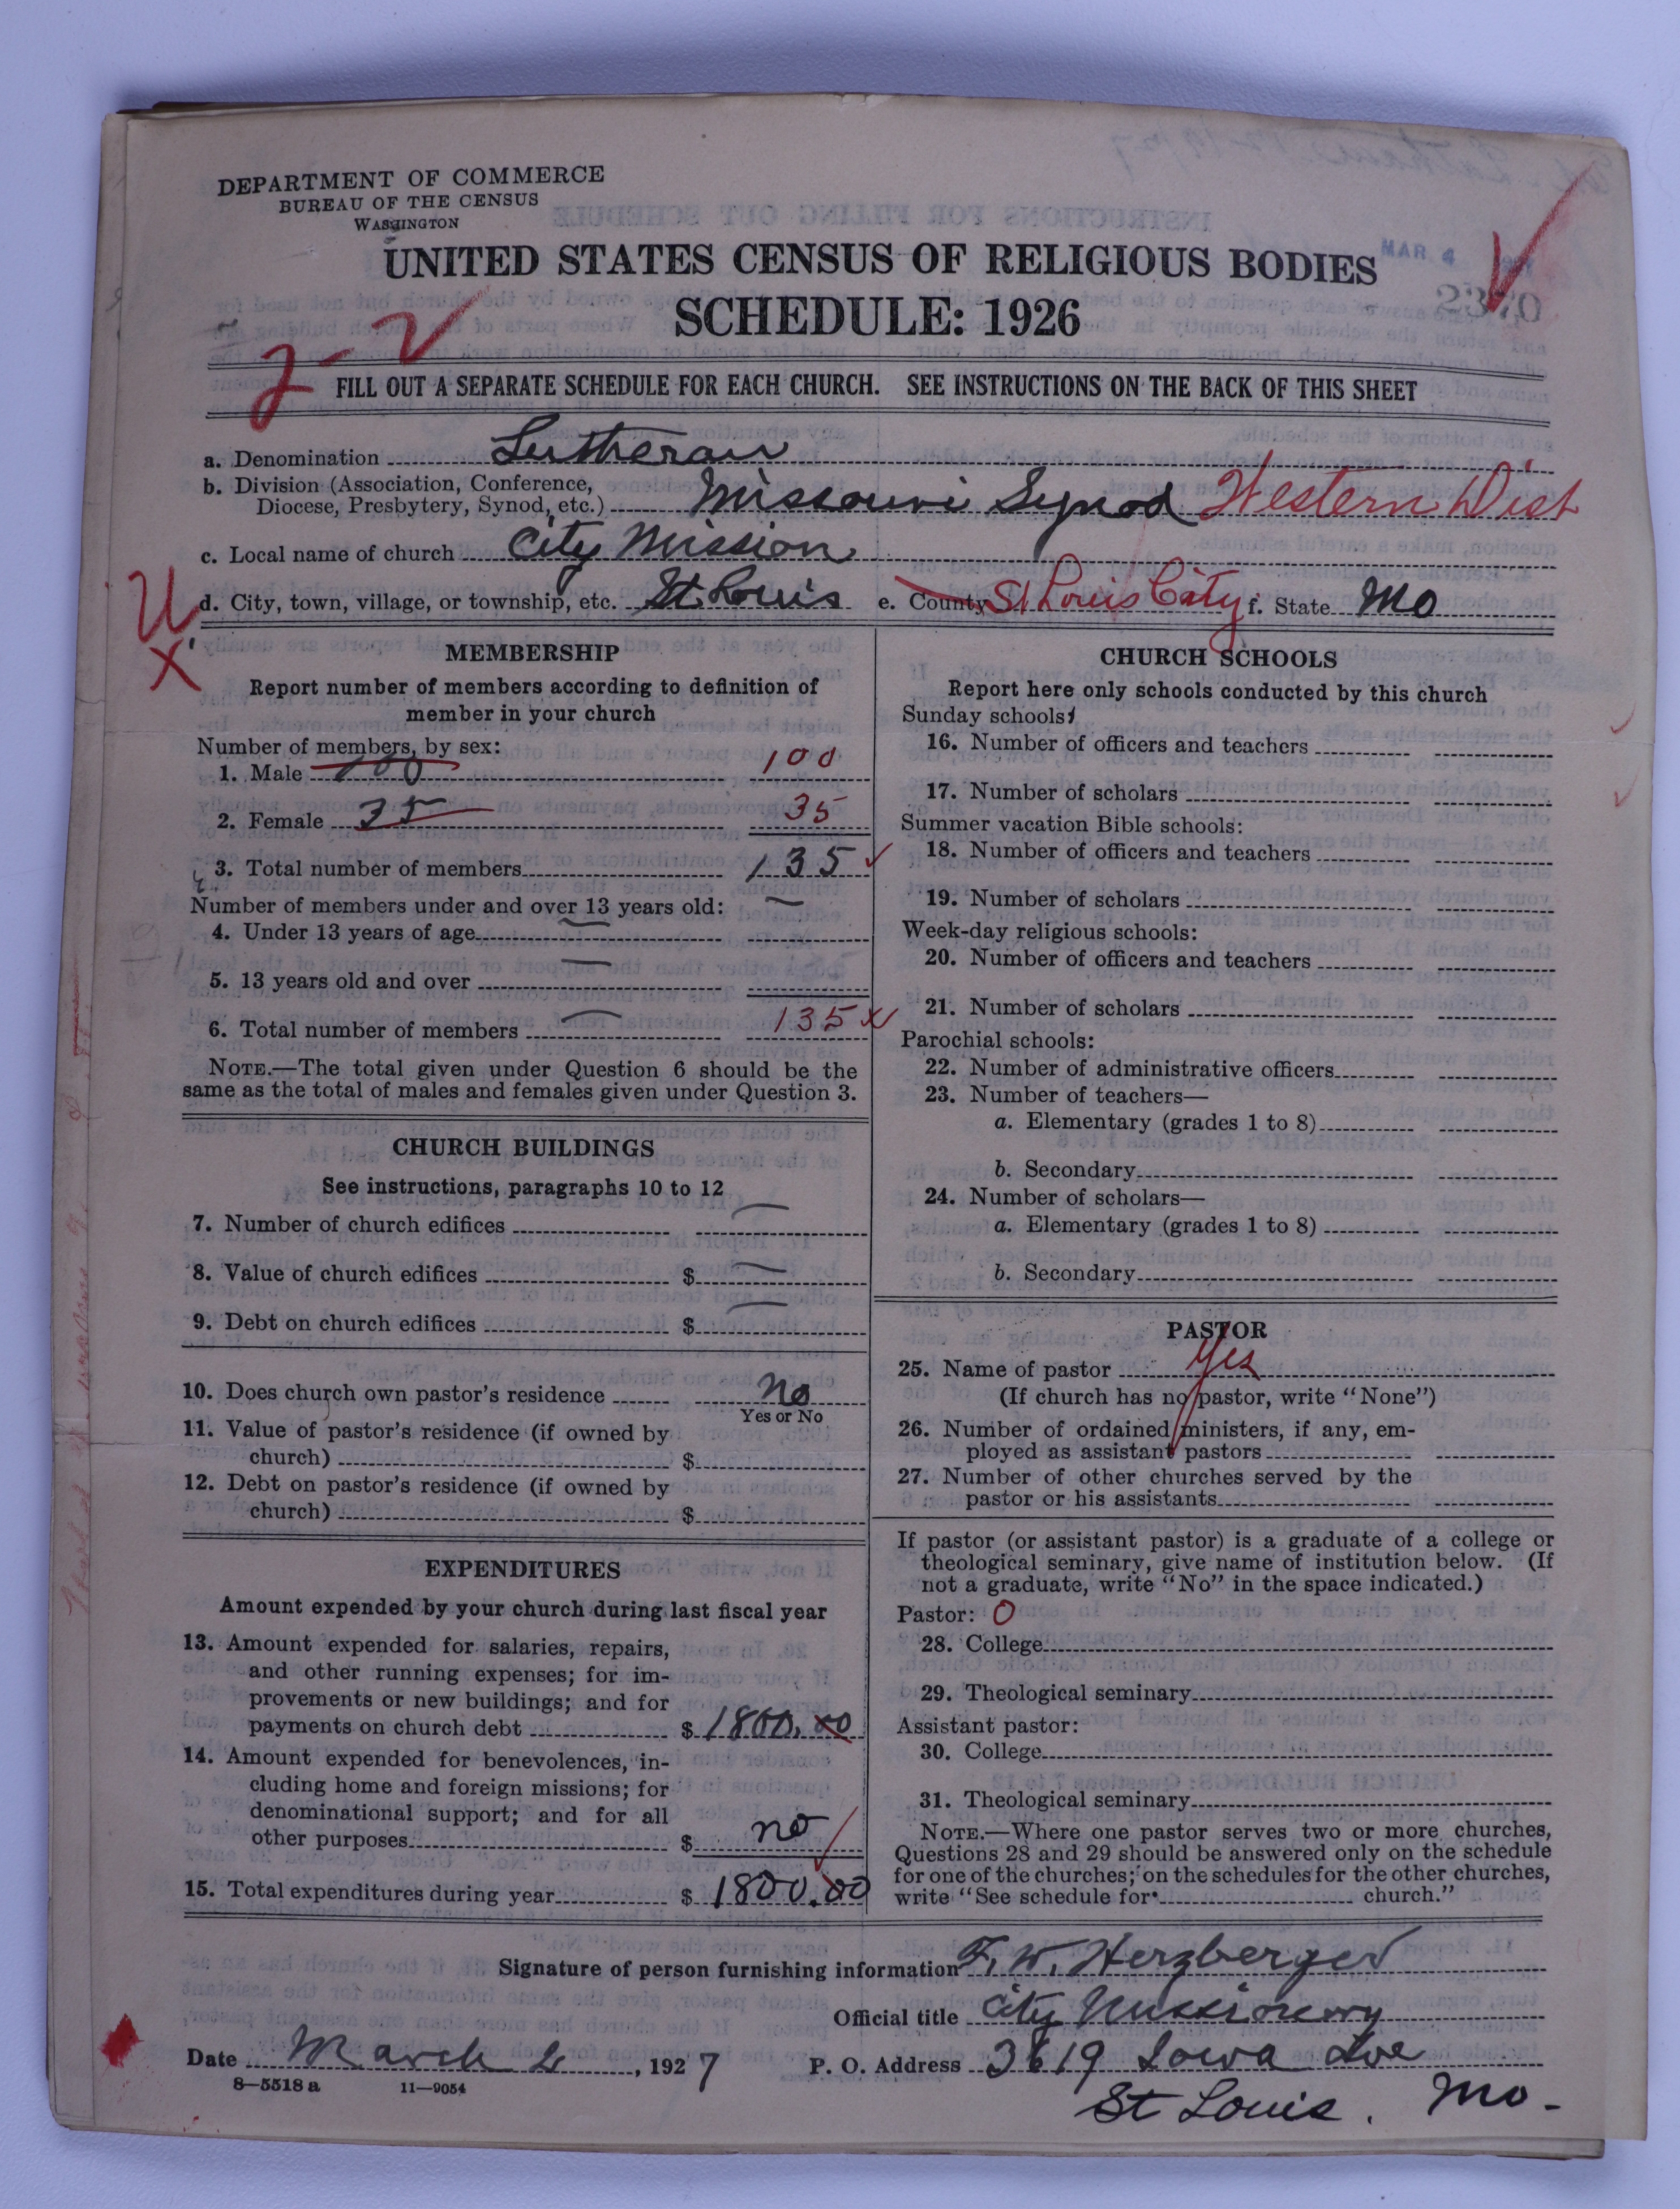 DEPARTMENT OF COMMERCE
BUREAU OF THE CENSUS
WASHINGTON
UNITED STATES CENSUS OF RELIGIOUS BODIES
MAR. 4
SCHEDULE: 1926
2370
FILL OUT A SEPARATE SCHEDULE FOR EACH CHURCH. SEE INSTRUCTIONS ON THE BACK OF THIS SHEET
a. Denomination Lutheran
b. Division (Association, Conference,
Diocese, Presbytery, Synod, etc.) Missouri Synod Western Dist
c. Local name of church City Mission
U d. City, town, village, or township, etc. St. Louis e. County St Louis City f. State Mo
X
MEMBERSHIP
Report number of members according to definition of
member in your church
Number of members, by sex:
1. Male 100 100
2. Female 35 35
3. Total number of members 135
Number of members under and over 13 years old:
4. Under 13 years of age
5. 13 years old and over
6. Total number of members 135
NOTE.—The total given under Question 6 should be the
same as the total of males and females given under Question 3.
CHURCH BUILDINGS
See instructions, paragraphs 10 to 12
7. Number of church edifices
8. Value of church edifices $
9. Debt on church edifices $
10. Does church own pastor's residence No
Yes or No
11. Value of pastor's residence (if owned by
church) $
12. Debt on pastor's residence (if owned by
church) $
EXPENDITURES
Amount expended by your church during last fiscal year
13. Amount expended for salaries, repairs,
and other running expenses; for im-
provements or new buildings; and for
payments on church debt $ 1800.00
14. Amount expended for benevolences, in-
cluding home and foreign missions; for
denominational support; and for all
other purposes $ no
15. Total expenditures during year $ 1800.00
CHURCH SCHOOLS
Report here only schools conducted by this church
Sunday schools:
16. Number of officers and teachers
17. Number of scholars
Summer vacation Bible schools:
18. Number of officers and teachers
19. Number of scholars
Week-day religious schools:
20. Number of officers and teachers
21. Number of scholars
Parochial schools:
22. Number of administrative officers
23. Number of teachers—
a. Elementary (grades 1 to 8)
b. Secondary
24. Number of scholars—
a. Elementary (grades 1 to 8)
b. Secondary
PASTOR
25. Name of pastor Yes
(If church has no pastor, write "None")
26. Number of ordained ministers, if any, em-
ployed as assistant pastors
27. Number of other churches served by the
pastor or his assistants
If pastor (or assistant pastor) is a graduate of a college or
theological seminary, give name of institution below. (If
not a graduate, write "No" in the space indicated.)
Pastor: O
28. College
29. Theological seminary
Assistant pastor:
30. College
31. Theological seminary
NOTE.—Where one pastor serves two or more churches,
Questions 28 and 29 should be answered only on the schedule
for one of the churches; on the schedules for the other churches,
write "See schedule for church."
Signature of person furnishing information F. W. Herzberger
Official title City Missionary
Date March 2, 1927 P. O. Address 3619 Iowa Ave
8—5518 a 11—9054
St Louis. Mo.